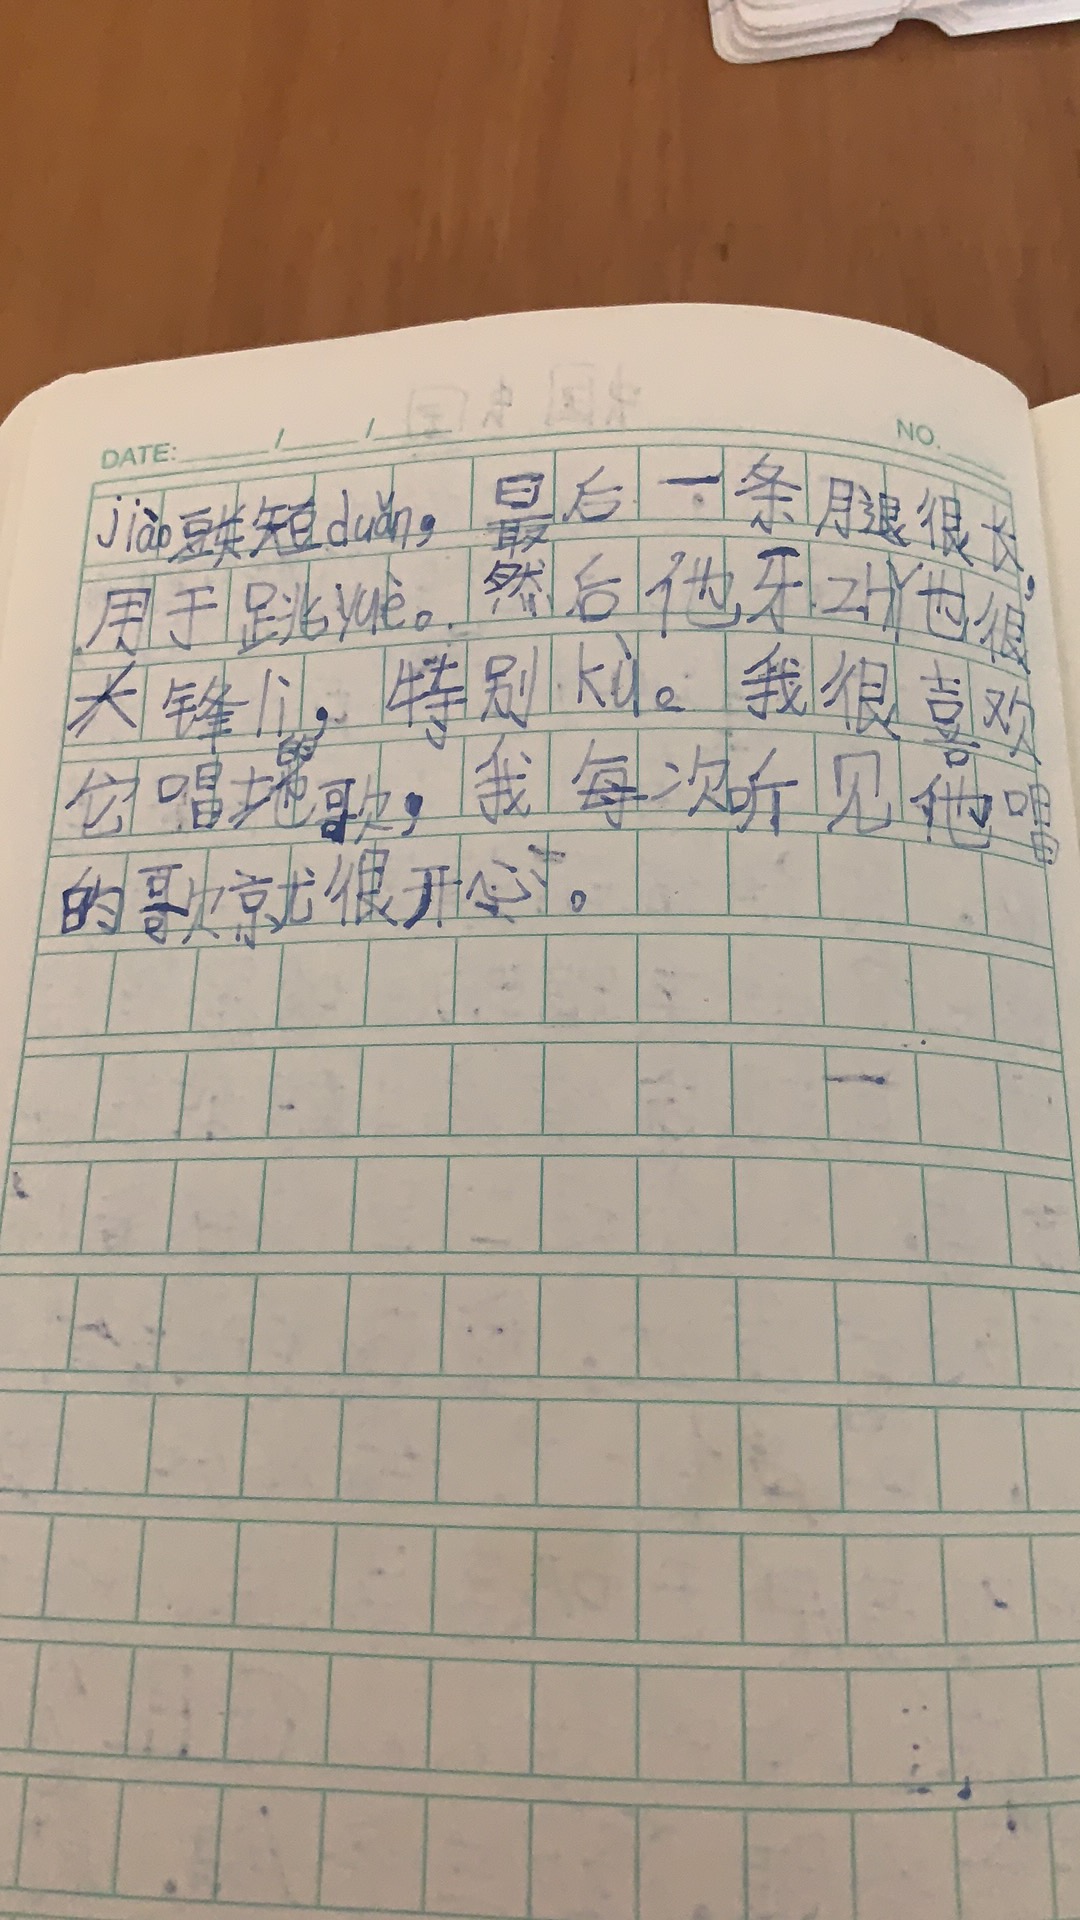 DATE: / / NO.
jiào 短duǎn，最后一条腿很长，
用于跳yuè。然后他牙 也很
大锋lì，特别kù。我很喜欢
它唱的歌，我每次听见他唱
的歌就很开心。